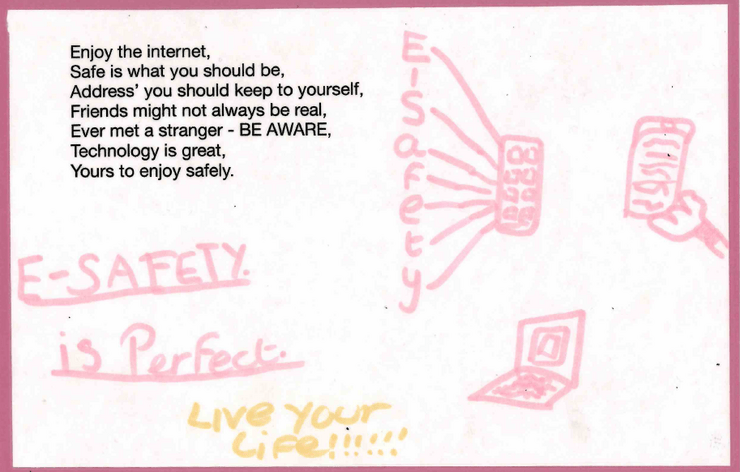 Enjoy the internet,
Safe is what you should be,
Address’ you should keep to yourself,
Friends might not always be real,
Ever met a stranger - BE AWARE,
Technology is great,
Yours to enjoy safely.
E-Safety
E-SAFETY.
is Perfect.
Live your
Life!!!!!!